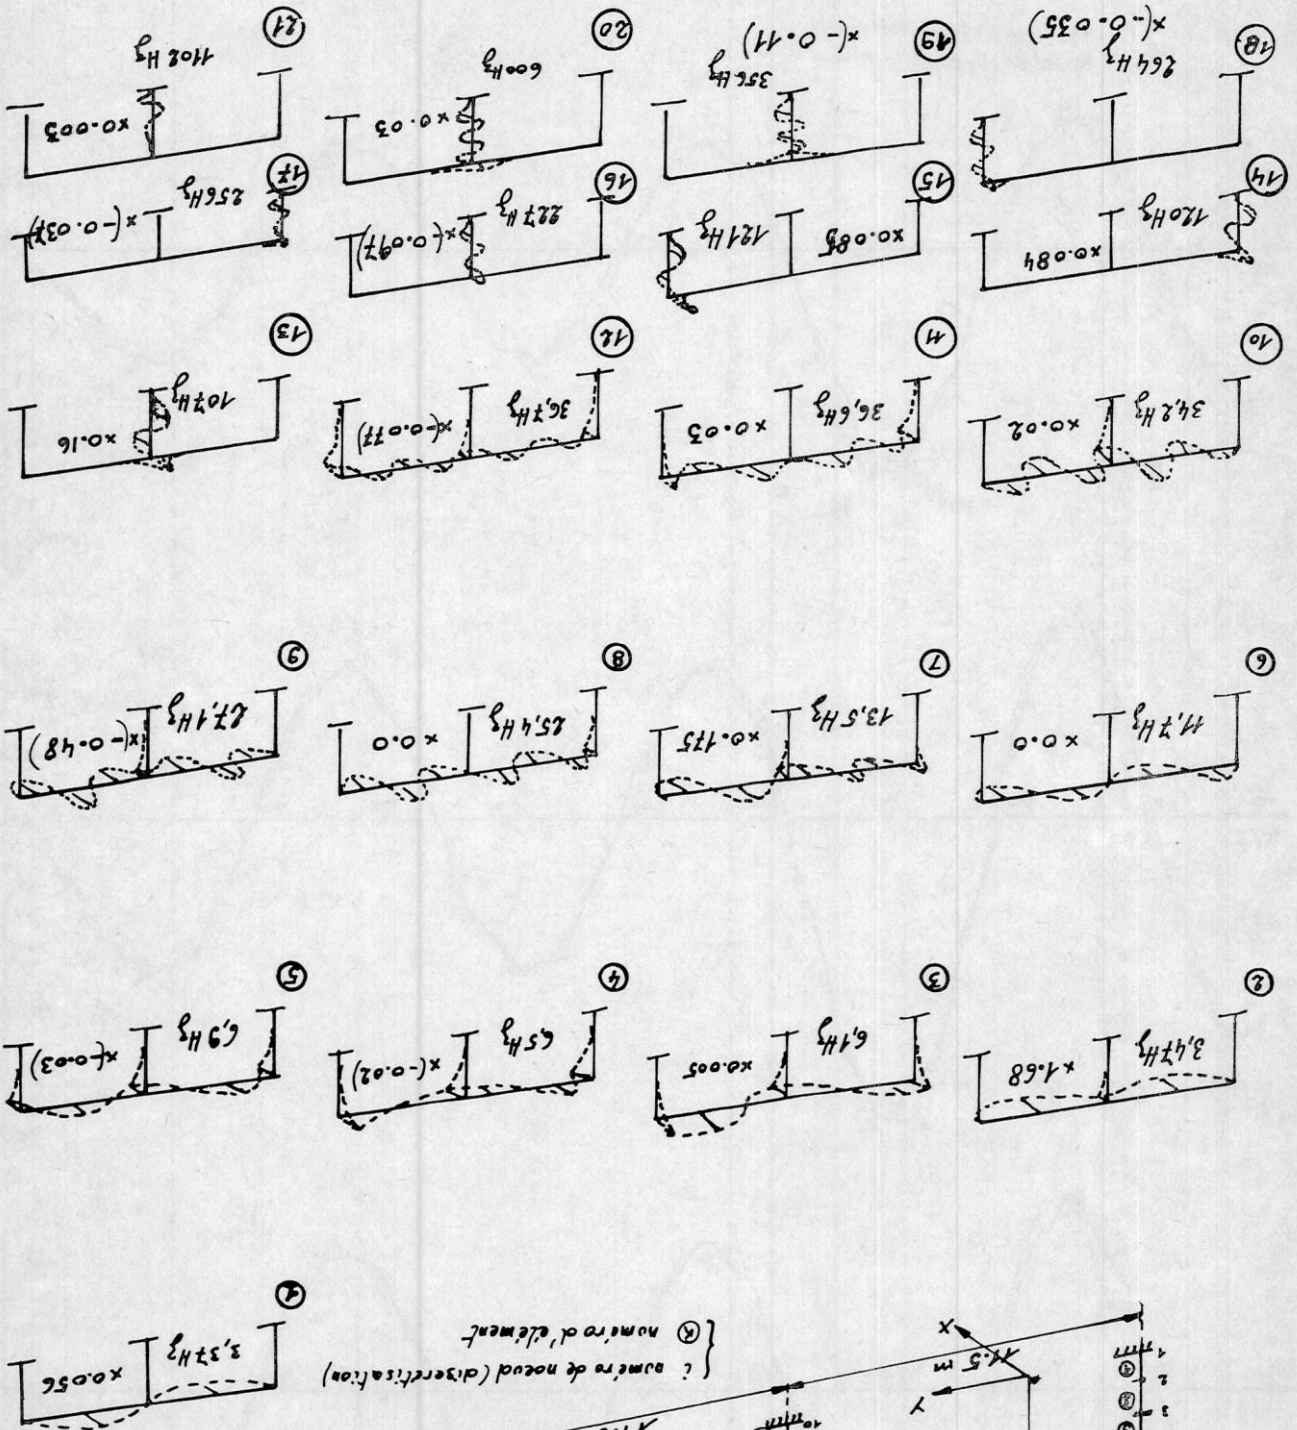 10
3
2
1
Y
X
11.5 m
i numéro de noeud (discrétisation)
K numéro d'élément
3,37 Hz x0.056
1
3,47 Hz x1.68
2
6,1 Hz x0.005
3
6,5 Hz x(-0.02)
4
6,9 Hz x(-0.03)
5
11,7 Hz x0.0
6
13,5 Hz x0.175
7
25,4 Hz x0.0
8
27,1 Hz x(-0.48)
9
34,2 Hz x0.02
10
36,6 Hz x0.03
11
36,7 Hz x(-0.077)
12
107 Hz x0.16
13
120 Hz x0.084
14
x0.085 121 Hz
15
227 Hz x(-0.097)
16
256 Hz x(-0.037)
17
264 Hz
x(-0.035)
18
356 Hz
x(-0.11)
19
x0.03
600 Hz
20
x0.003
1102 Hz
21